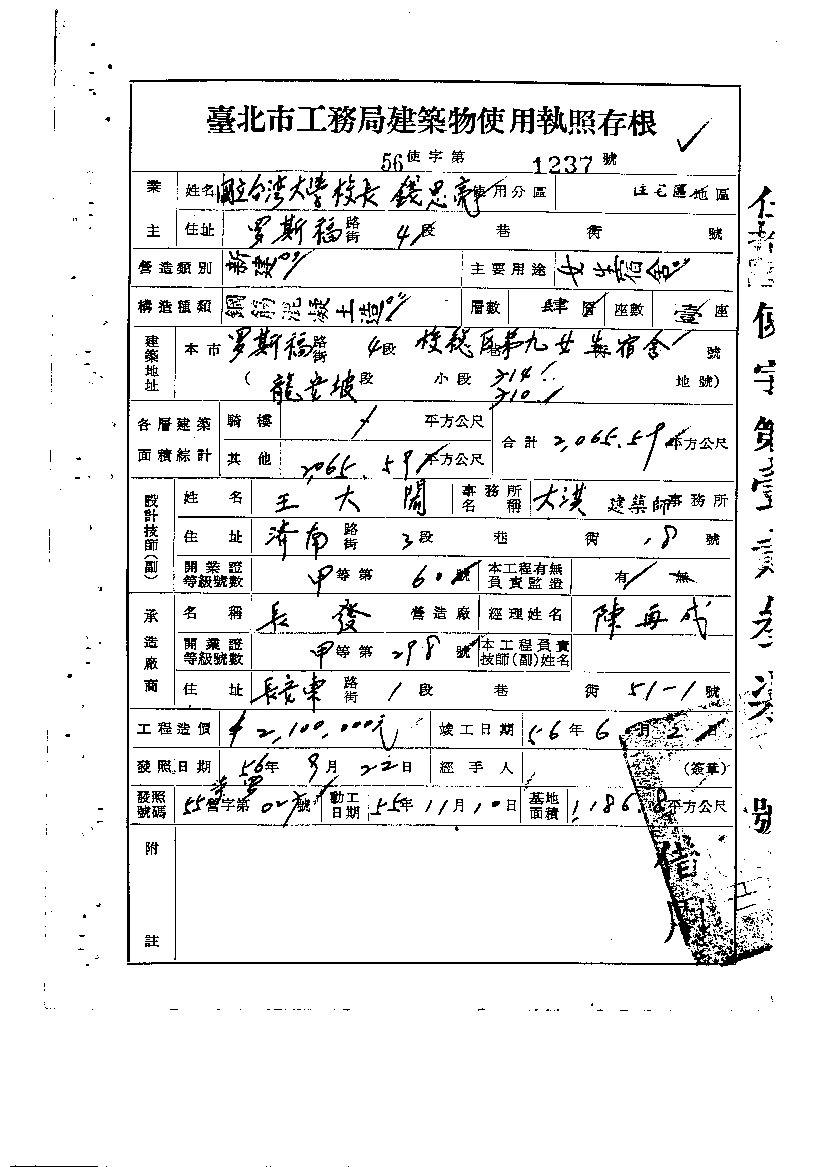 臺北市工務局建築物使用執照存根
56使字第 1237號
業主 姓名 國立台湾大學校長 錢思亮 使用分區 住宅區地區
住址 罗斯福路街 4段 巷 街 號
營造類別 新建 主要用途 女生宿舍
構造種類 鋼筋混凝土造 層數 肆層 座數 壹座
建築地址 本市 罗斯福路街 4段 校總區第九女生宿舍 號
(龍安坡段 小段 314 310 地號)
各層建築面積綜計 騎樓 平方公尺 合計 2,065.59平方公尺
其他 2,065.59平方公尺
設計技師(副) 姓名 王大閎 事務所名稱 大洪建築師事務所
住址 濟南路街 3段 巷 街 8號
開業證等級號數 甲等第 60號 本工程有無負責監造 有 無
承造廠商 名稱 長發營造廠 經理姓名 陳再成
開業證等級號數 甲等第298號 本工程負責技師(副)姓名
住址 長安東路街 1段 巷 街 51-1號
工程造價 $2,100,000元 竣工日期 56年6月2日
發照日期 56年9月22日 經手人 (簽章)
發照號碼 55營字第 號 動工日期 55年11月10日 基地面積 1,186.8平方公尺
附註
借用
使字第壹 號